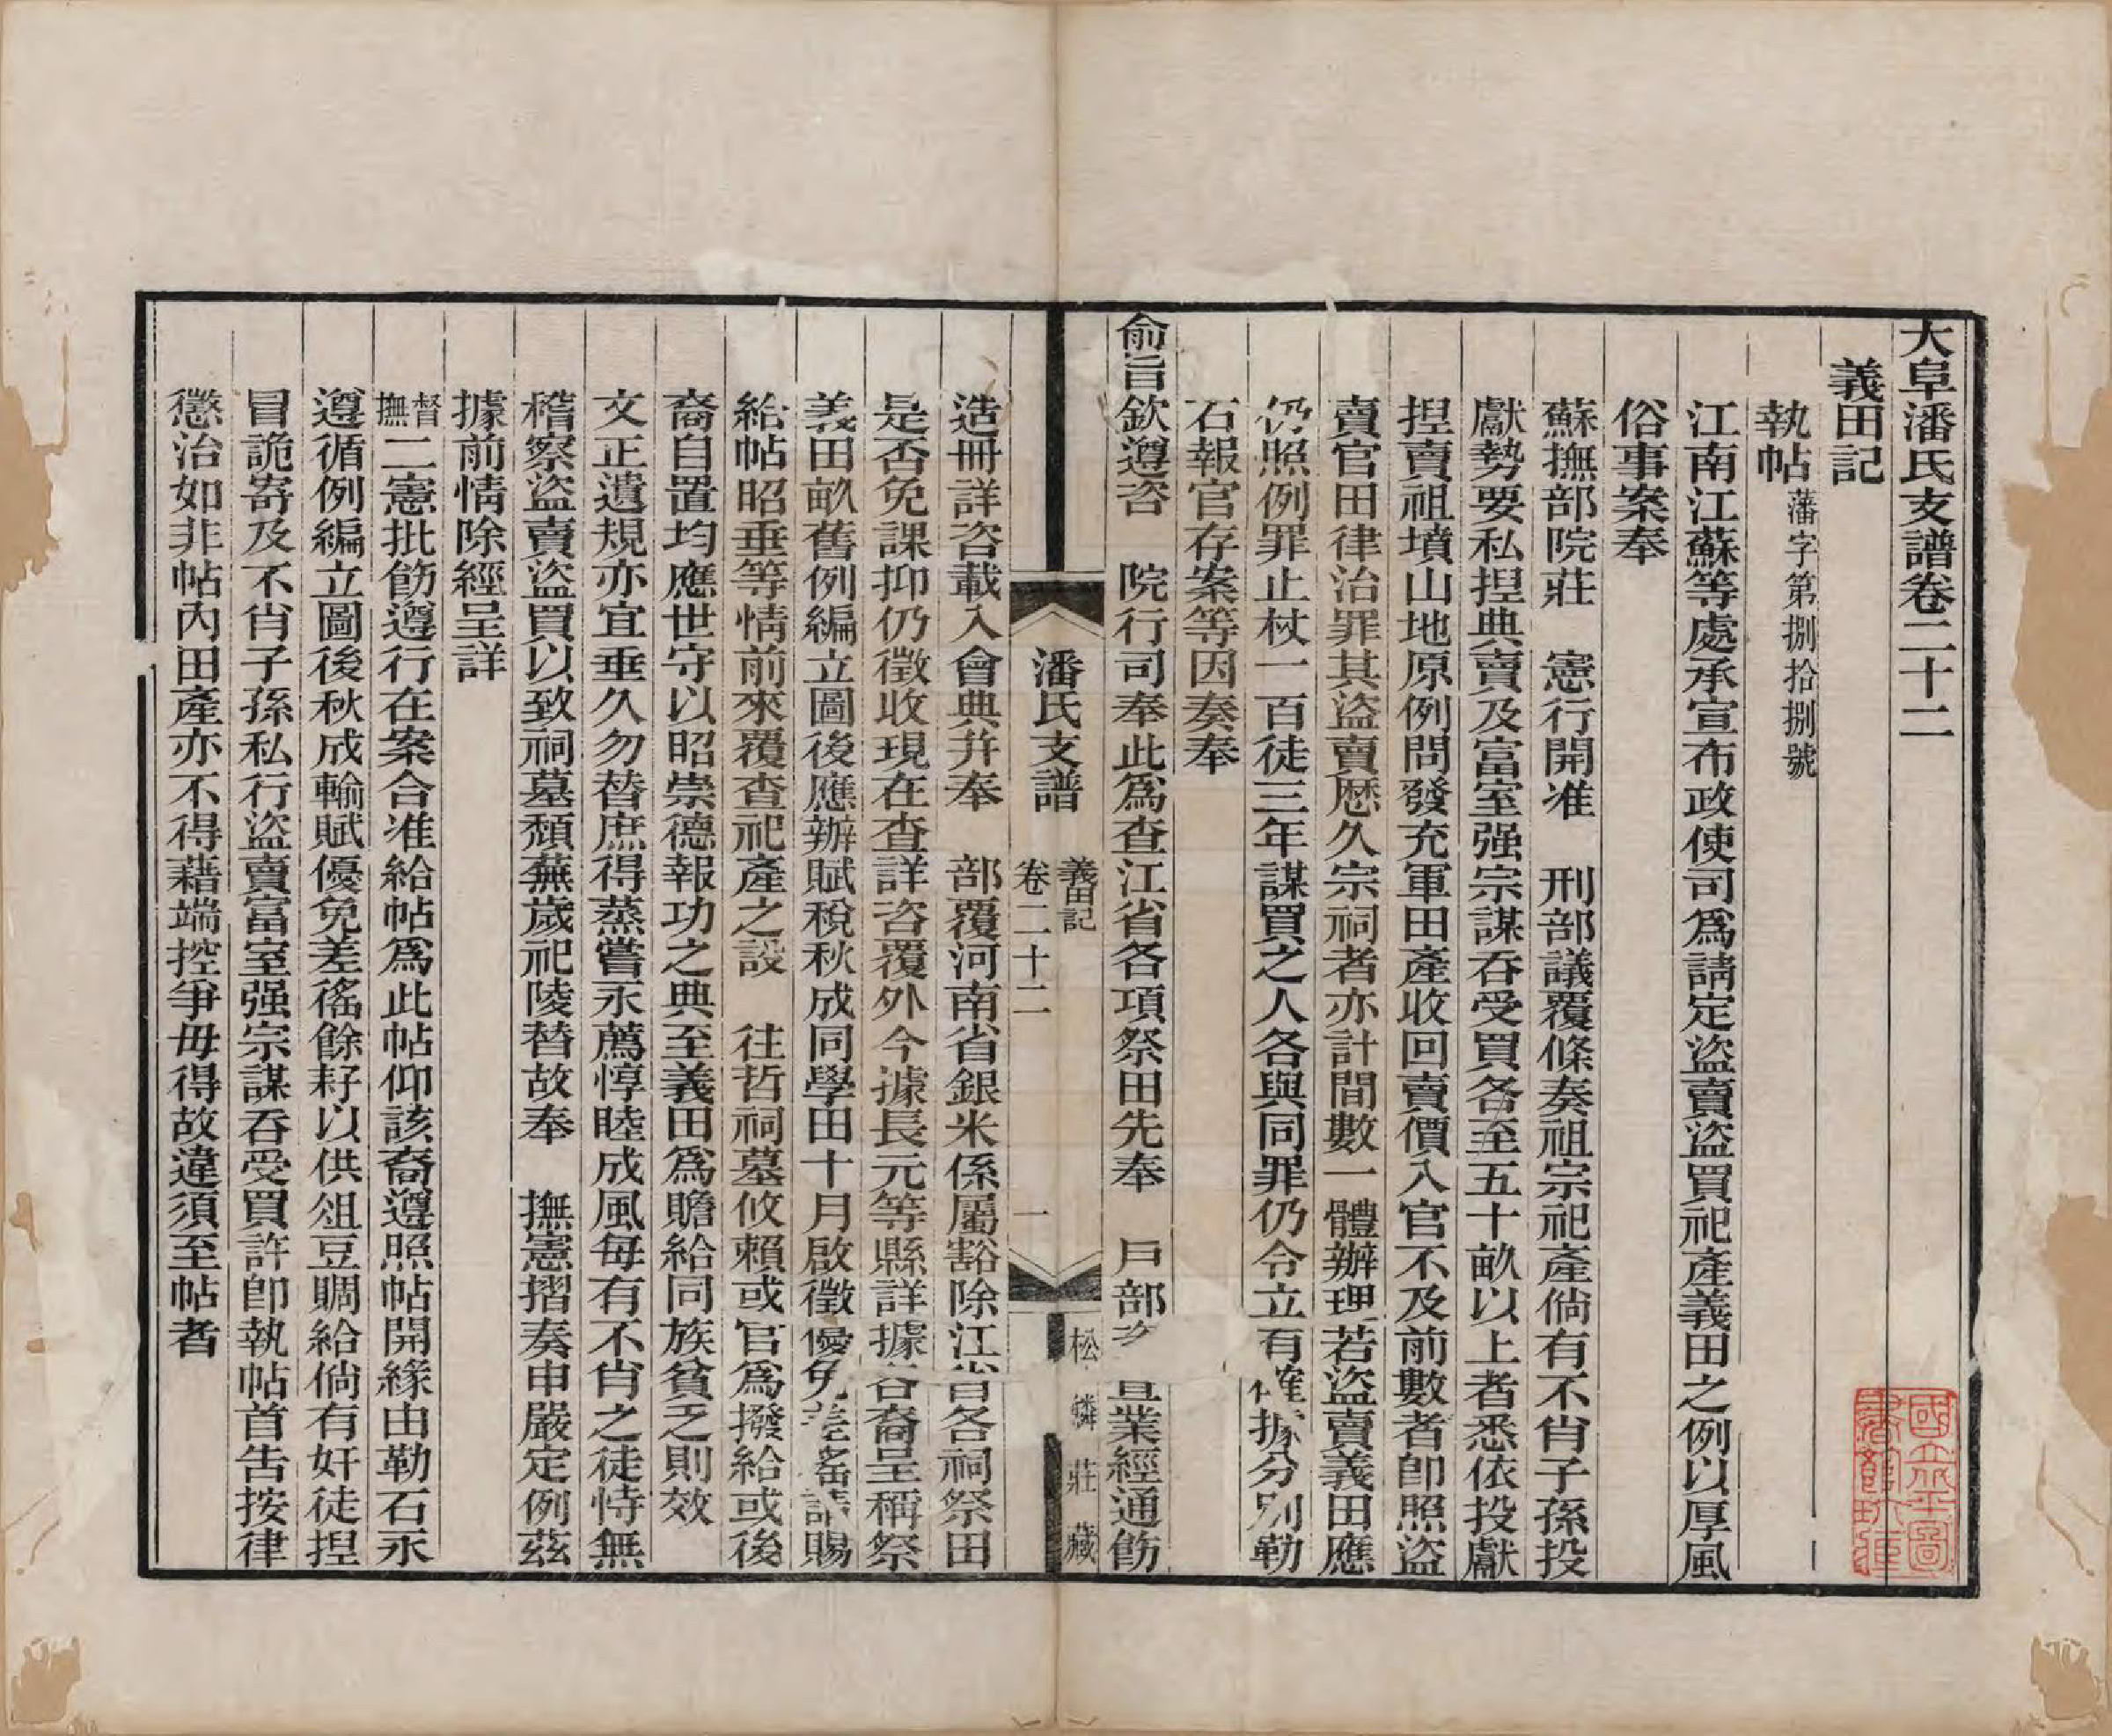 大阜潘氏支譜卷二十二
義田記
執帖藩字第捌拾捌號
江南江蘇等處承宣布政使司爲請定盜賣盜買祀產義田之例以厚風
俗事案奉
蘇撫部院莊　憲行開准　刑部議覆條奏祖宗祀產倘有不肖子孫投
獻勢要私捏典賣及富室强宗謀吞受買各至五十畝以上者悉依投獻
捏賣祖墳山地原例問發充軍田產收回賣價入官不及前數者卽照盜
賣官田律治罪其盜賣歷久宗祠者亦計間數一體辦理若盜賣義田應
仍照例罪止杖一百徒三年謀買之人各與同罪仍令立有確據分別勒
石報官存案等因奏奉
俞旨欽遵咨　院行司奉此爲查江省各項祭田先奉　戶部　業經通飭
潘氏支譜
義田記
卷二十二
一
松鱗莊藏
造冊詳咨載入會典并奉　部覆河南省銀米係屬豁除江省各祠祭田
是否免課抑仍徵收現在查詳咨覆外今據長元等縣詳據各裔呈稱祭
義田畝舊例編立圖後應辦賦稅秋成同學田十月啟徵優免差徭請賜
給帖昭垂等情前來覆查祀產之設　往哲祠墓攸賴或官爲撥給或後
裔自置均應世守以昭崇德報功之典至義田爲贍給同族貧乏則效
文正遺規亦宜垂久勿替庶得蒸嘗永薦惇睦成風每有不肖之徒恃無
稽察盜賣盜買以致祠墓頹蕪歲祀陵替故奉　撫憲摺奏申嚴定例茲
據前情除經呈詳
督撫二憲批飭遵行在案合准給帖爲此帖仰該裔遵照帖開緣由勒石永
遵循例編立圖後秋成輸賦優免差徭餘耔以供俎豆賙給倘有奸徒捏
冒詭寄及不肖子孫私行盜賣富室强宗謀吞受買許卽執帖首告按律
懲治如非帖內田產亦不得藉端控爭毋得故違須至帖者